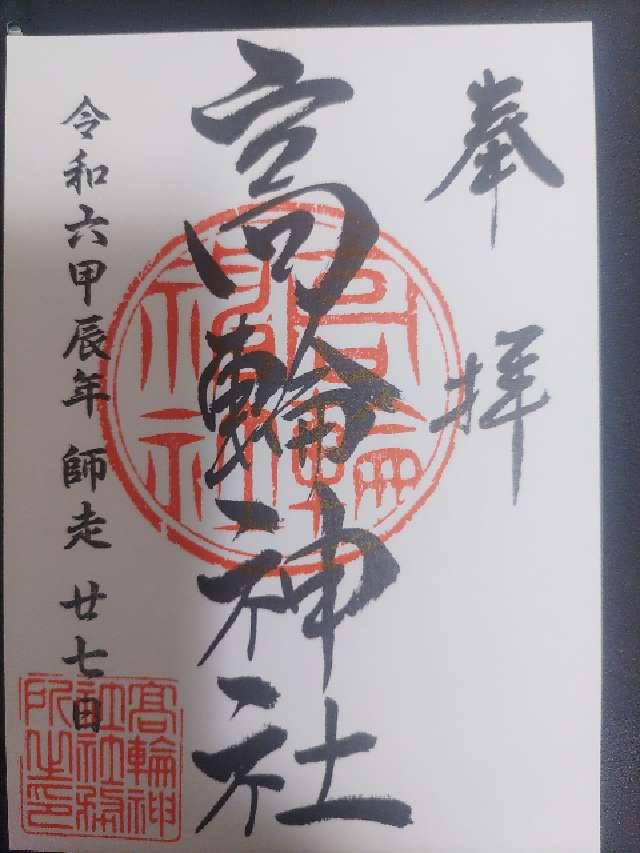 奉拝
高輪神社
令和六甲辰年 師走 廿七日
高輪神社
高輪神社社務所之印